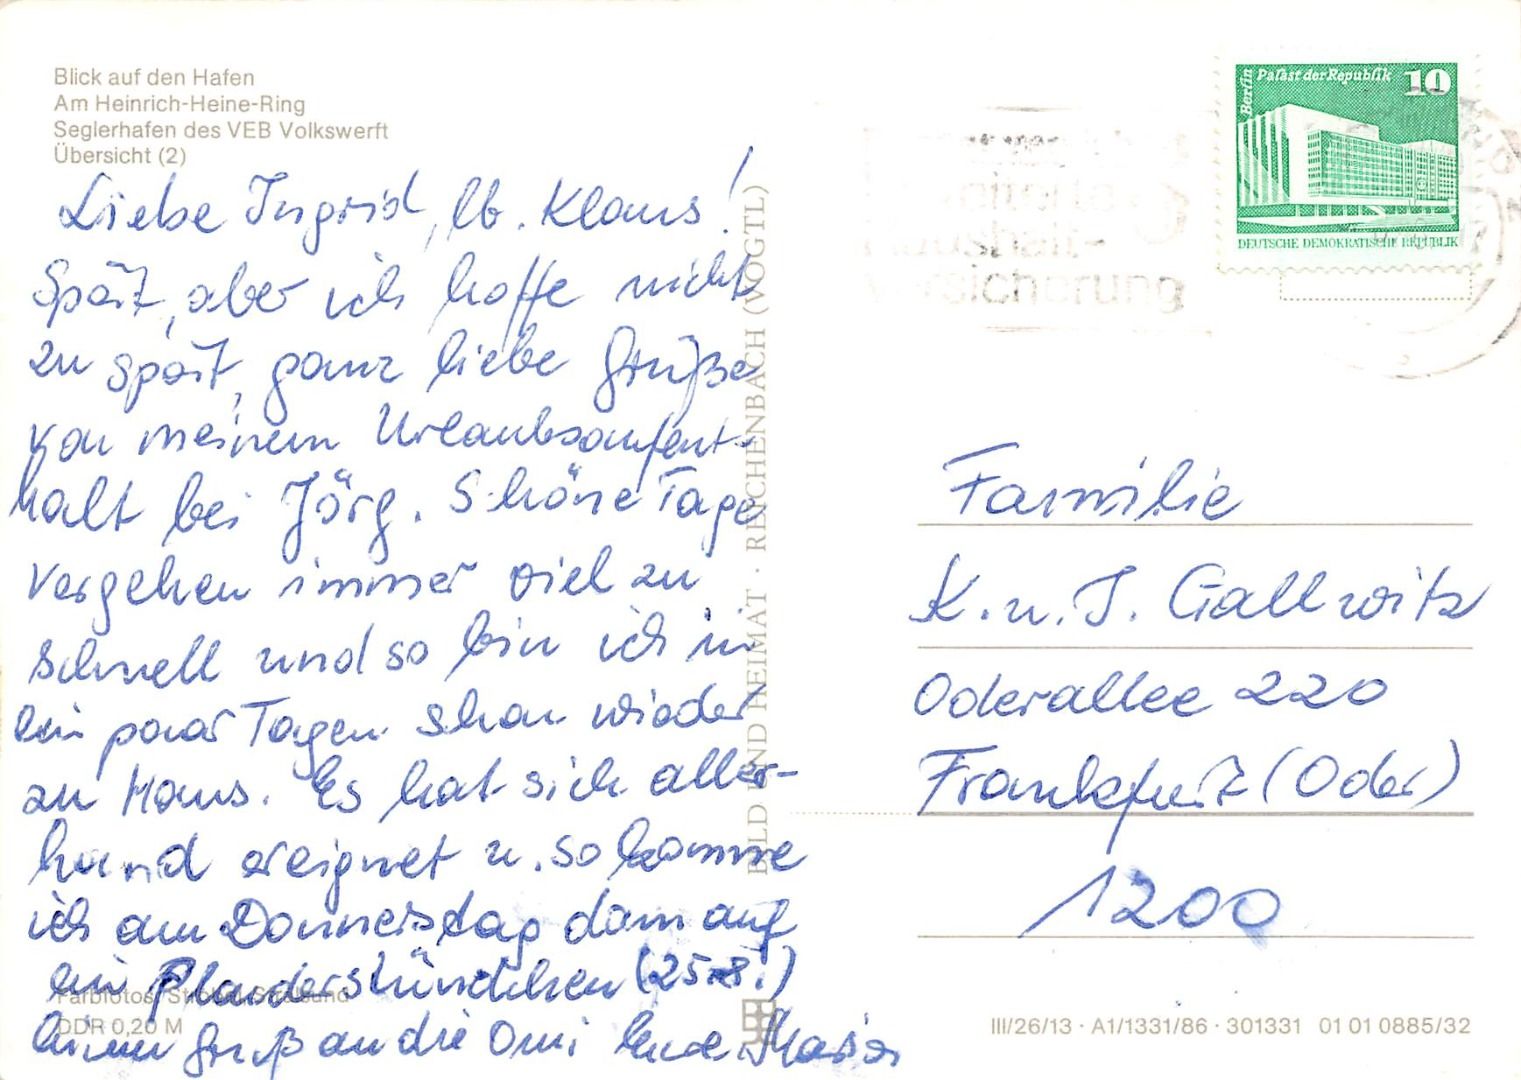 Blick auf den Hafen
Am Heinrich-Heine-Ring
Seglerhafen des VEB Volkswerft
Übersicht (2)
Liebe Ingrid, lb. Klaus!
Spät, aber ich hoffe nicht
zu spät, ganz liebe Grüße
von meinem Urlaubsaufent-
halt bei Jörg. Schöne Tage
vergehen immer viel zu
schnell und so bin ich in
ein paar Tagen schon wieder
zu Haus. Es hat sich aller-
hand ereignet u. so komme
ich am Donnerstag dann auf
ein Plauderstündchen (25.8.!)
einen Gruß an die Omi Eure
Farbfotos:
DDR 0,20 M
BILD UND HEIMAT · REICHENBACH (VOGTL)
Berlin
Palast der Republik 10
DEUTSCHE DEMOKRATISCHE REPUBLIK
Haushalt-
versicherung
Familie
K. u. I. Gallwitz
Oderallee 220
Frankfurt (Oder)
1200
III/26/13 · A1/1331/86 · 301331 01 01 0885/32